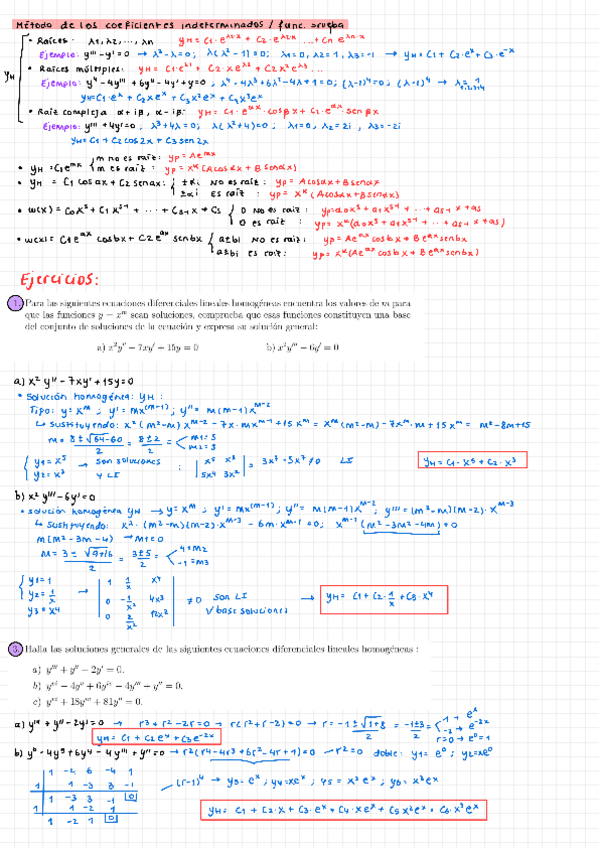 Método de los coeficientes indeterminados / func. prueba
• Raíces: λ1, λ2, ..., λn yH = C1·e^λ1x + C2·e^λ2x ... + Cn e^λnx
Ejemplo: y''' - y' = 0 → λ³ - λ = 0; λ(λ² - 1) = 0; λ1 = 0, λ2 = 1, λ3 = -1 → yH = C1 + C2·e^x + C3·e^-x
yH
• Raíces múltiples: yH = C1·e^λ1 + C2·x e^λ1 + C2x² e^λ3 ...
Ejemplo: y'''' - 4y''' + 6y'' - 4y' + y = 0; λ⁴ - 4λ³ + 6λ² - 4λ + 1 = 0; (λ-1)⁴ = 0; (λ-1)⁴ → λ = 1
yH = C1·e^x + C2xe^x + C3x²e^x + C4x³e^x
• Raíz compleja α + iβ, α - iβ: yH = C1·e^αx · cosβx + C2·e^αx · senβx
Ejemplo: y''' + 4y' = 0, λ³ + 4λ = 0; λ(λ² + 4) = 0; λ1 = 0, λ2 = 2i, λ3 = -2i
yH = C1 + C2 cos2x + C3 sen2x
• yH = C1e^mx { m no es raíz: yp = Ae^mx
m es raíz: yp = x^k (A cosαx + B senαx)
• yH = C1 cosαx + C2 senαx: { ±αi no es raíz: yp = A cosαx + B senαx
±αi es raíz: yp = x^k (A cosαx + B senαx)
• w(x) = C0x^s + C1x^s-1 + ... + Cs-1x + Cs { 0 no es raíz: yp = a0x^s + a1x^s-1 + ... + as-1x + as
0 es raíz: yp = x^k (a0x^s + a1x^s-1 + ... + as-1x + as)
• w(x) = C1e^ax cosbx + C2e^ax senbx { a±bi no es raíz: yp = Ae^ax cosbx + Be^ax senbx
a±bi es raíz: yp = x^k (Ae^ax cosbx + Be^ax senbx)
Ejercicios:
1. Para las siguientes ecuaciones diferenciales lineales homogéneas encuentra los valores de m para
que las funciones y = x^m sean soluciones, comprueba que esas funciones constituyen una base
del conjunto de soluciones de la ecuación y expresa su solución general:
a) x²y'' − 7xy' + 15y = 0 b) x²y''' − 6y' = 0
a) x² y'' - 7xy' + 15y = 0
• Solución homogénea: yH:
Tipo: y = x^m; y' = mx^(m-1); y'' = m(m-1)x^m-2
↳ Sustituyendo: x²(m²-m)x^m-2 - 7x·mx^m-1 + 15x^m = x^m(m²-m) - 7x^m·m + 15x^m = m² - 8m + 15
m = 8 ± √64-60 / 2 = 8 ± 2 / 2 = < m1 = 5
m2 = 3
{ y1 = x⁵ → son soluciones : | x⁵ x³ | = 3x⁷ - 5x⁷ ≠ 0 LI yH = C1·x⁵ + C2·x³
y2 = x³ y LI | 5x⁴ 3x² |
b) x² y''' - 6y' = 0
• solución homogénea yH → y = x^m; y' = mx^(m-1); y'' = m(m-1)x^m-2; y''' = (m²-m)(m-2)·x^m-3
↳ Sustituyendo: x²·(m²-m)(m-2)·x^m-3 - 6m·x^m-1 = 0; x^m-1(m³ - 3m² - 4m) = 0
m(m² - 3m - 4) → m1 = 0
m = 3 ± √9+16 / 2 = 3 ± 5 / 2 = < 4 = m2
-1 = m3
{ y1 = 1 | 1 1/x x⁴ |
y2 = 1/x → | 0 -1/x² 4x³ | ≠ 0 son LI → yH = C1 + C2·1/x + C3·x⁴
y3 = x⁴ | 0 2/x³ 12x² | y base soluciones
3. Halla las soluciones generales de las siguientes ecuaciones diferenciales lineales homogéneas:
a) y''' + y'' − 2y' = 0.
b) y^vi − 4y^v + 6y^iv − 4y''' + y'' = 0.
c) y^vi + 18y^iv + 81y'' = 0.
a) y''' + y'' - 2y' = 0 → r³ + r² - 2r = 0 → r(r² + r - 2) = 0 → r = -1 ± √1+8 / 2 = -1 ± 3 / 2 = < 1 → e^x
-2 → e^-2x
r = 0 → e⁰ = 1
yH = C1 + C2e^x + C3e^-2x
b) y⁶ - 4y⁵ + 6y⁴ - 4y''' + y'' = 0 → r²(r⁴ - 4r³ + 6r² - 4r + 1) = 0 → r² = 0 doble: y1 = e⁰; y2 = xe⁰
1 -4 6 -4 1
1 1 -3 3 -1 → (r-1)⁴ → y3 = e^x; y4 = xe^x; y5 = x²e^x; y6 = x³e^x
1 -3 3 -1 0
1 1 -2 1
1 -2 1 0
yH = C1 + C2·x + C3·e^x + C4·xe^x + C5x²e^x + C6·x³e^x